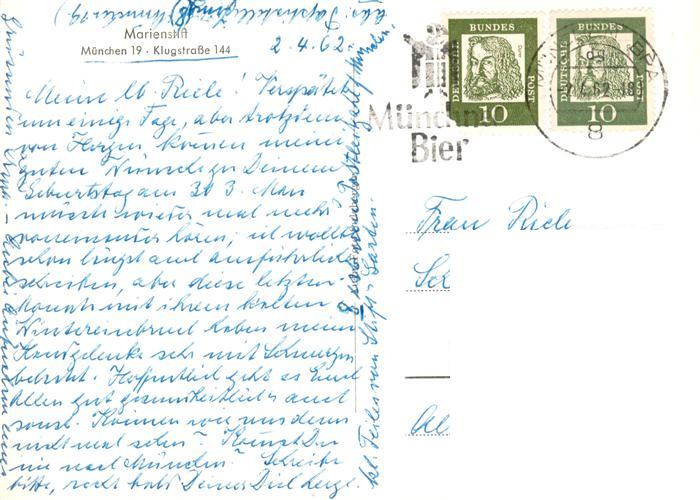 Marienstift
München 19 · Klugstraße 144
2.4.62.
Meine lb. Riele! Verspätet
um einige Tage, aber trotzdem
von Herzen kommen meine
guten Wünsche zu Deinem
Geburtstag am 30 3. Man
müsste wieder mal mehr
voneinander hören; ich wollte
schon längst mal ausführlich
schreiben, aber diese letzten
Monate mit ihrem kalten
Wintereinbruch haben meine
Handgelenke sehr mit Schmerzen
bedacht. Hoffentlich geht es Euch
allen gut gesundheitlich u. auch
sonst. Können wir uns denn
nicht mal sehen? Kommst Du
nie nach München? Schreibe
bitte, recht bald Deiner Dich herzl.
kl. Teiles vom Stifts-Garten.
Münchner
Bier
DEUTSCHE
BUNDES
POST
10
DEUTSCHE
BUNDES
POST
10
8
Frau Riele
Sch